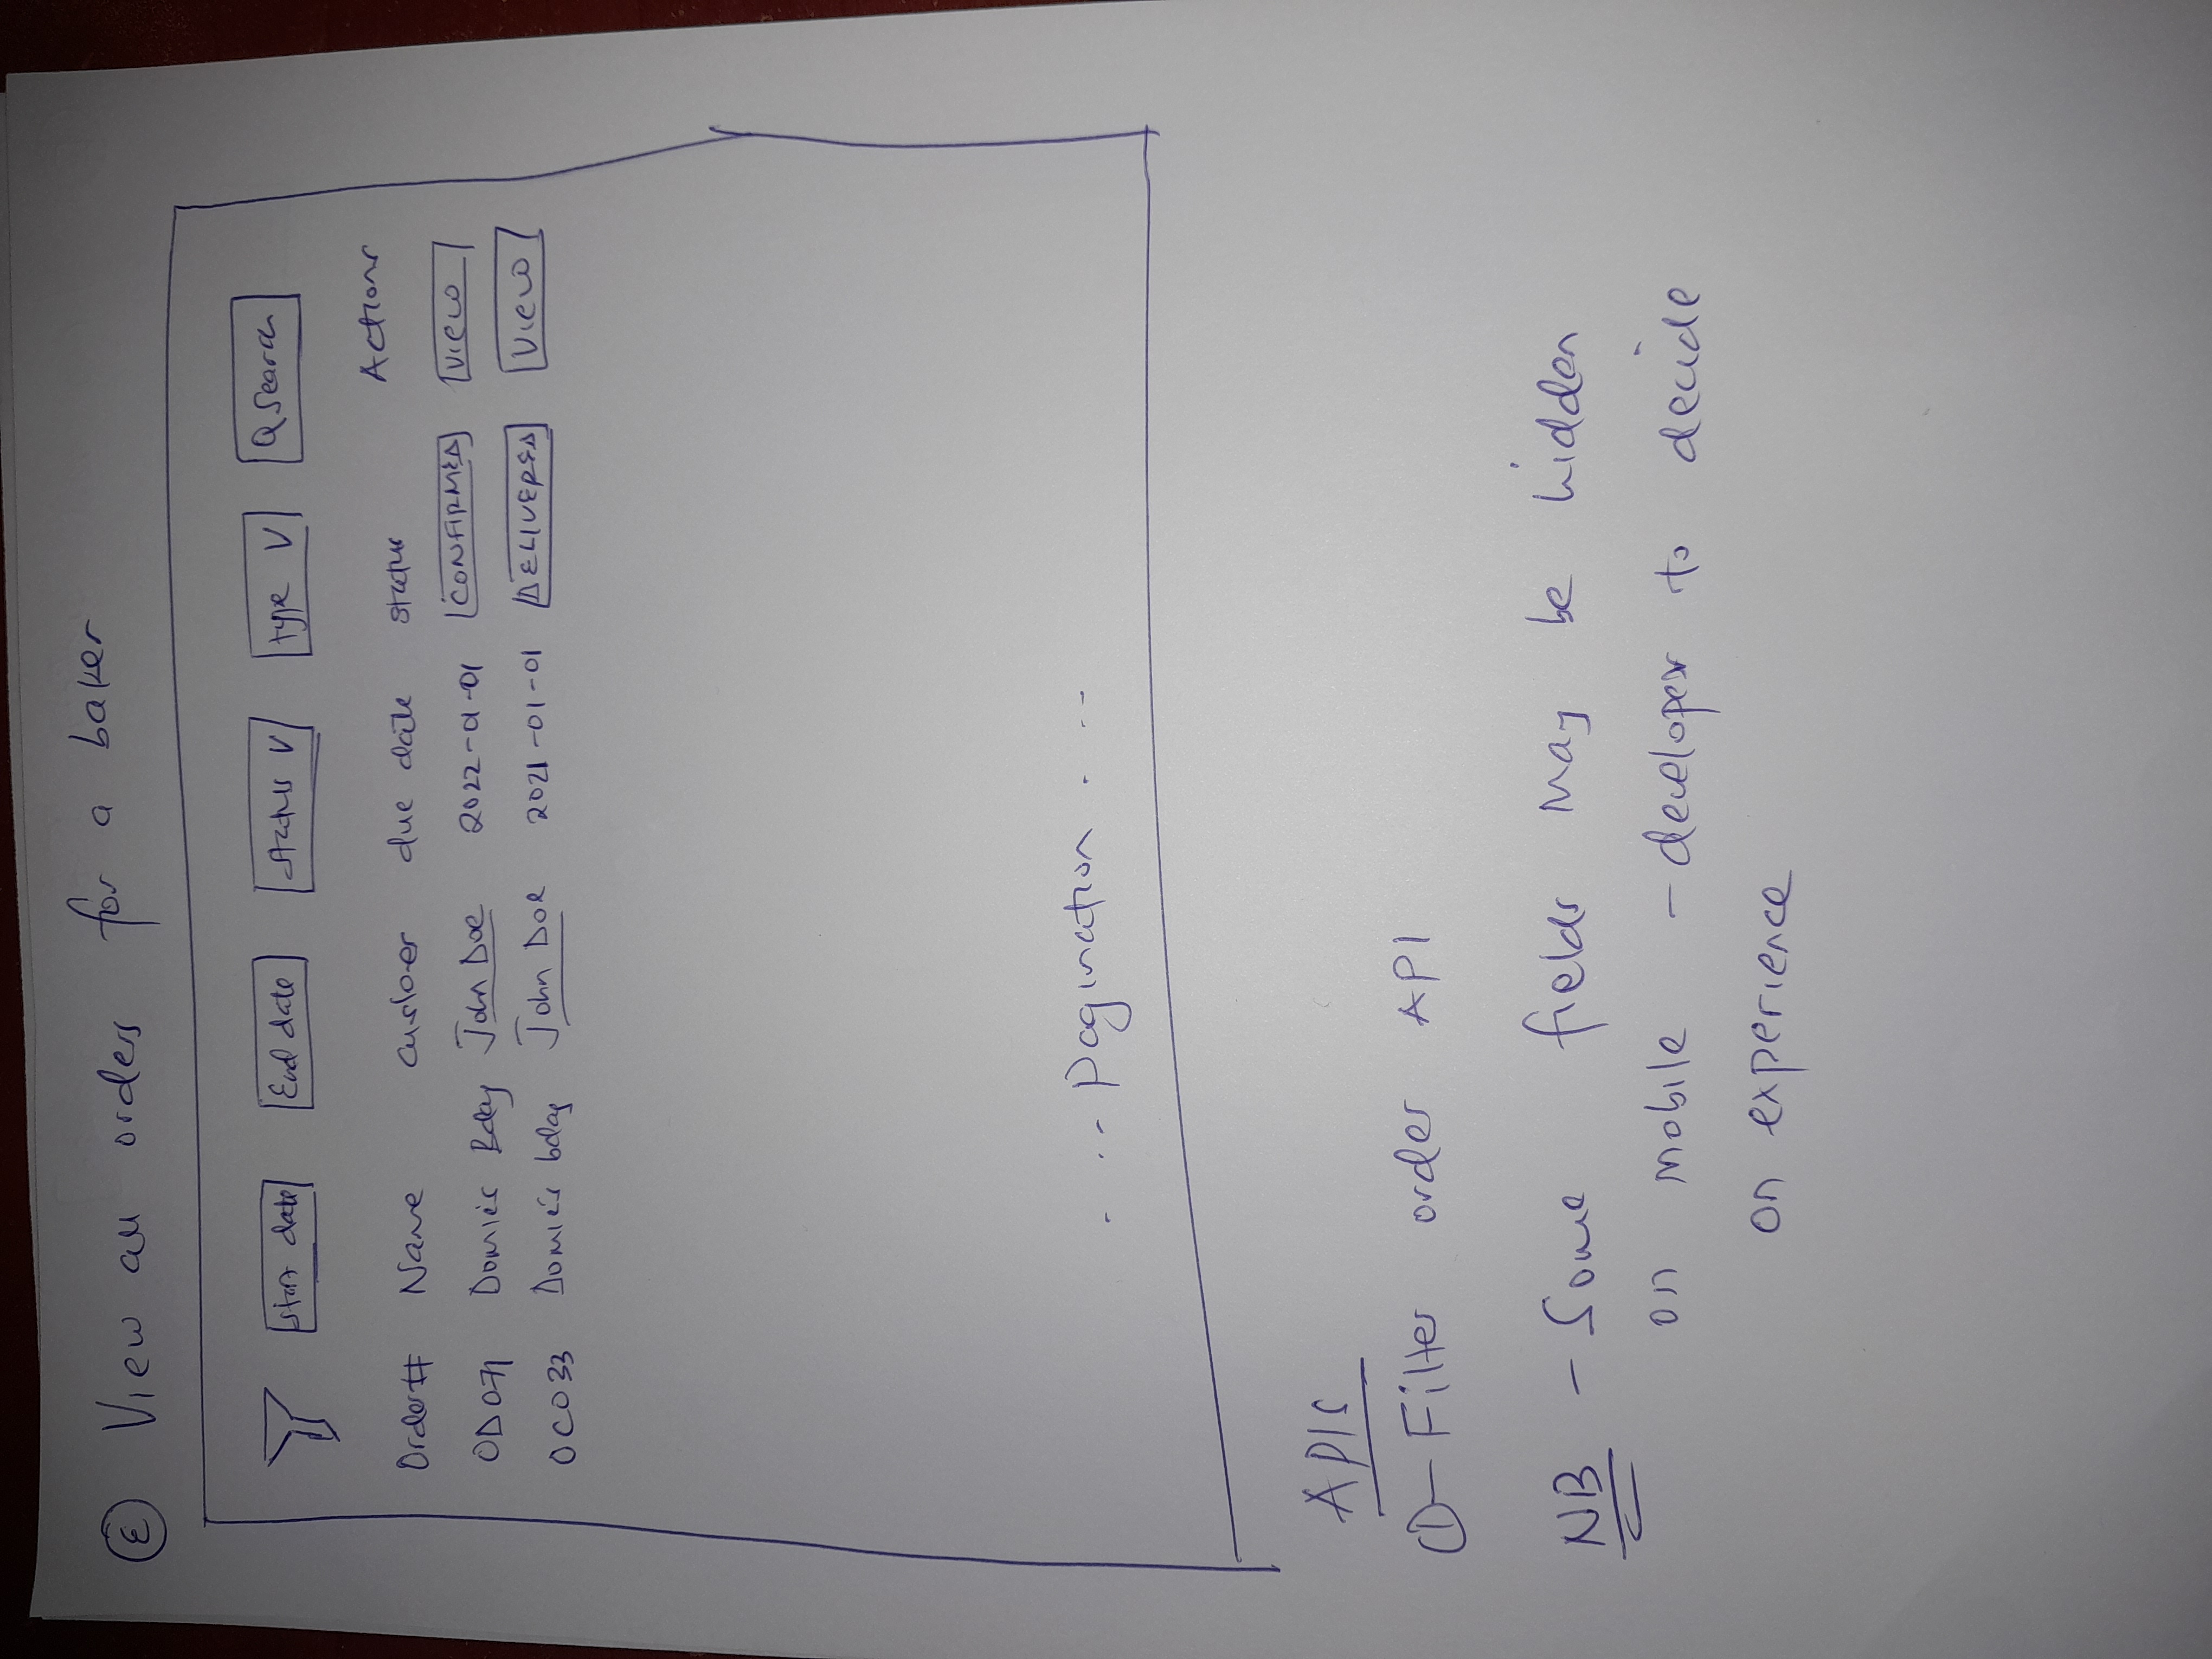 E View all orders for a baker
Start date End date Status V type V Q Search
Order# Name Custoer due date status Actions
OD071 Domie's Bday John Doe 2022-01-01 CONFIRMED View
OC033 Domie's bday John Doe 2021-01-01 DELIVERED View
. ... Pagination . ...
APIs
1 - Filter order API
NB - Some fields may be hidden
on mobile - developer to decide
on experience